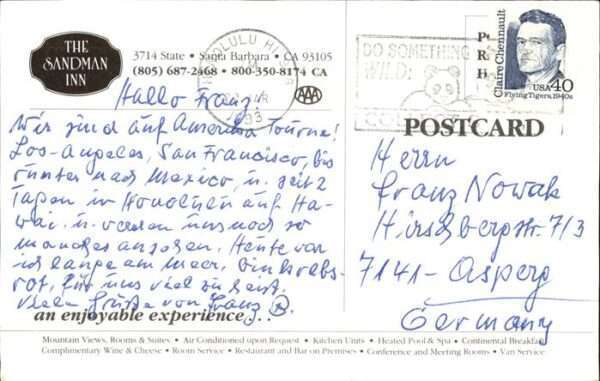 THE
SANDMAN
INN
3714 State • Santa Barbara • CA 93105
(805) 687-2468 • 800-350-8174 CA
AAA
HONOLULU HI
1993
DO SOMETHING
WILD:
Claire Chennault
USA 40
Flying Tigers, 1940s
POSTCARD
Hallo Franz!
Wir sind auf Amerika Tourne!
Los-Angeles, San Francisco, bis
runter nach Mexico, u. seit 2
Tagen in Honolulu auf Ha-
wai. u. werden uns noch so
manches ansehen. Heute war
ich lange am Meer, bin krebs-
rot, für uns viel zu heiß.
Viele Grüße von Franz
Herrn
Franz Nowak
Hirschbergstr. 7/3
7141 - Asperg
Germany
an enjoyable experience . . .
Mountain Views, Rooms & Suites • Air Conditioned upon Request • Kitchen Units • Heated Pool & Spa • Continental Breakfast
Complimentary Wine & Cheese • Room Service • Restaurant and Bar on Premises • Conference and Meeting Rooms • Van Service